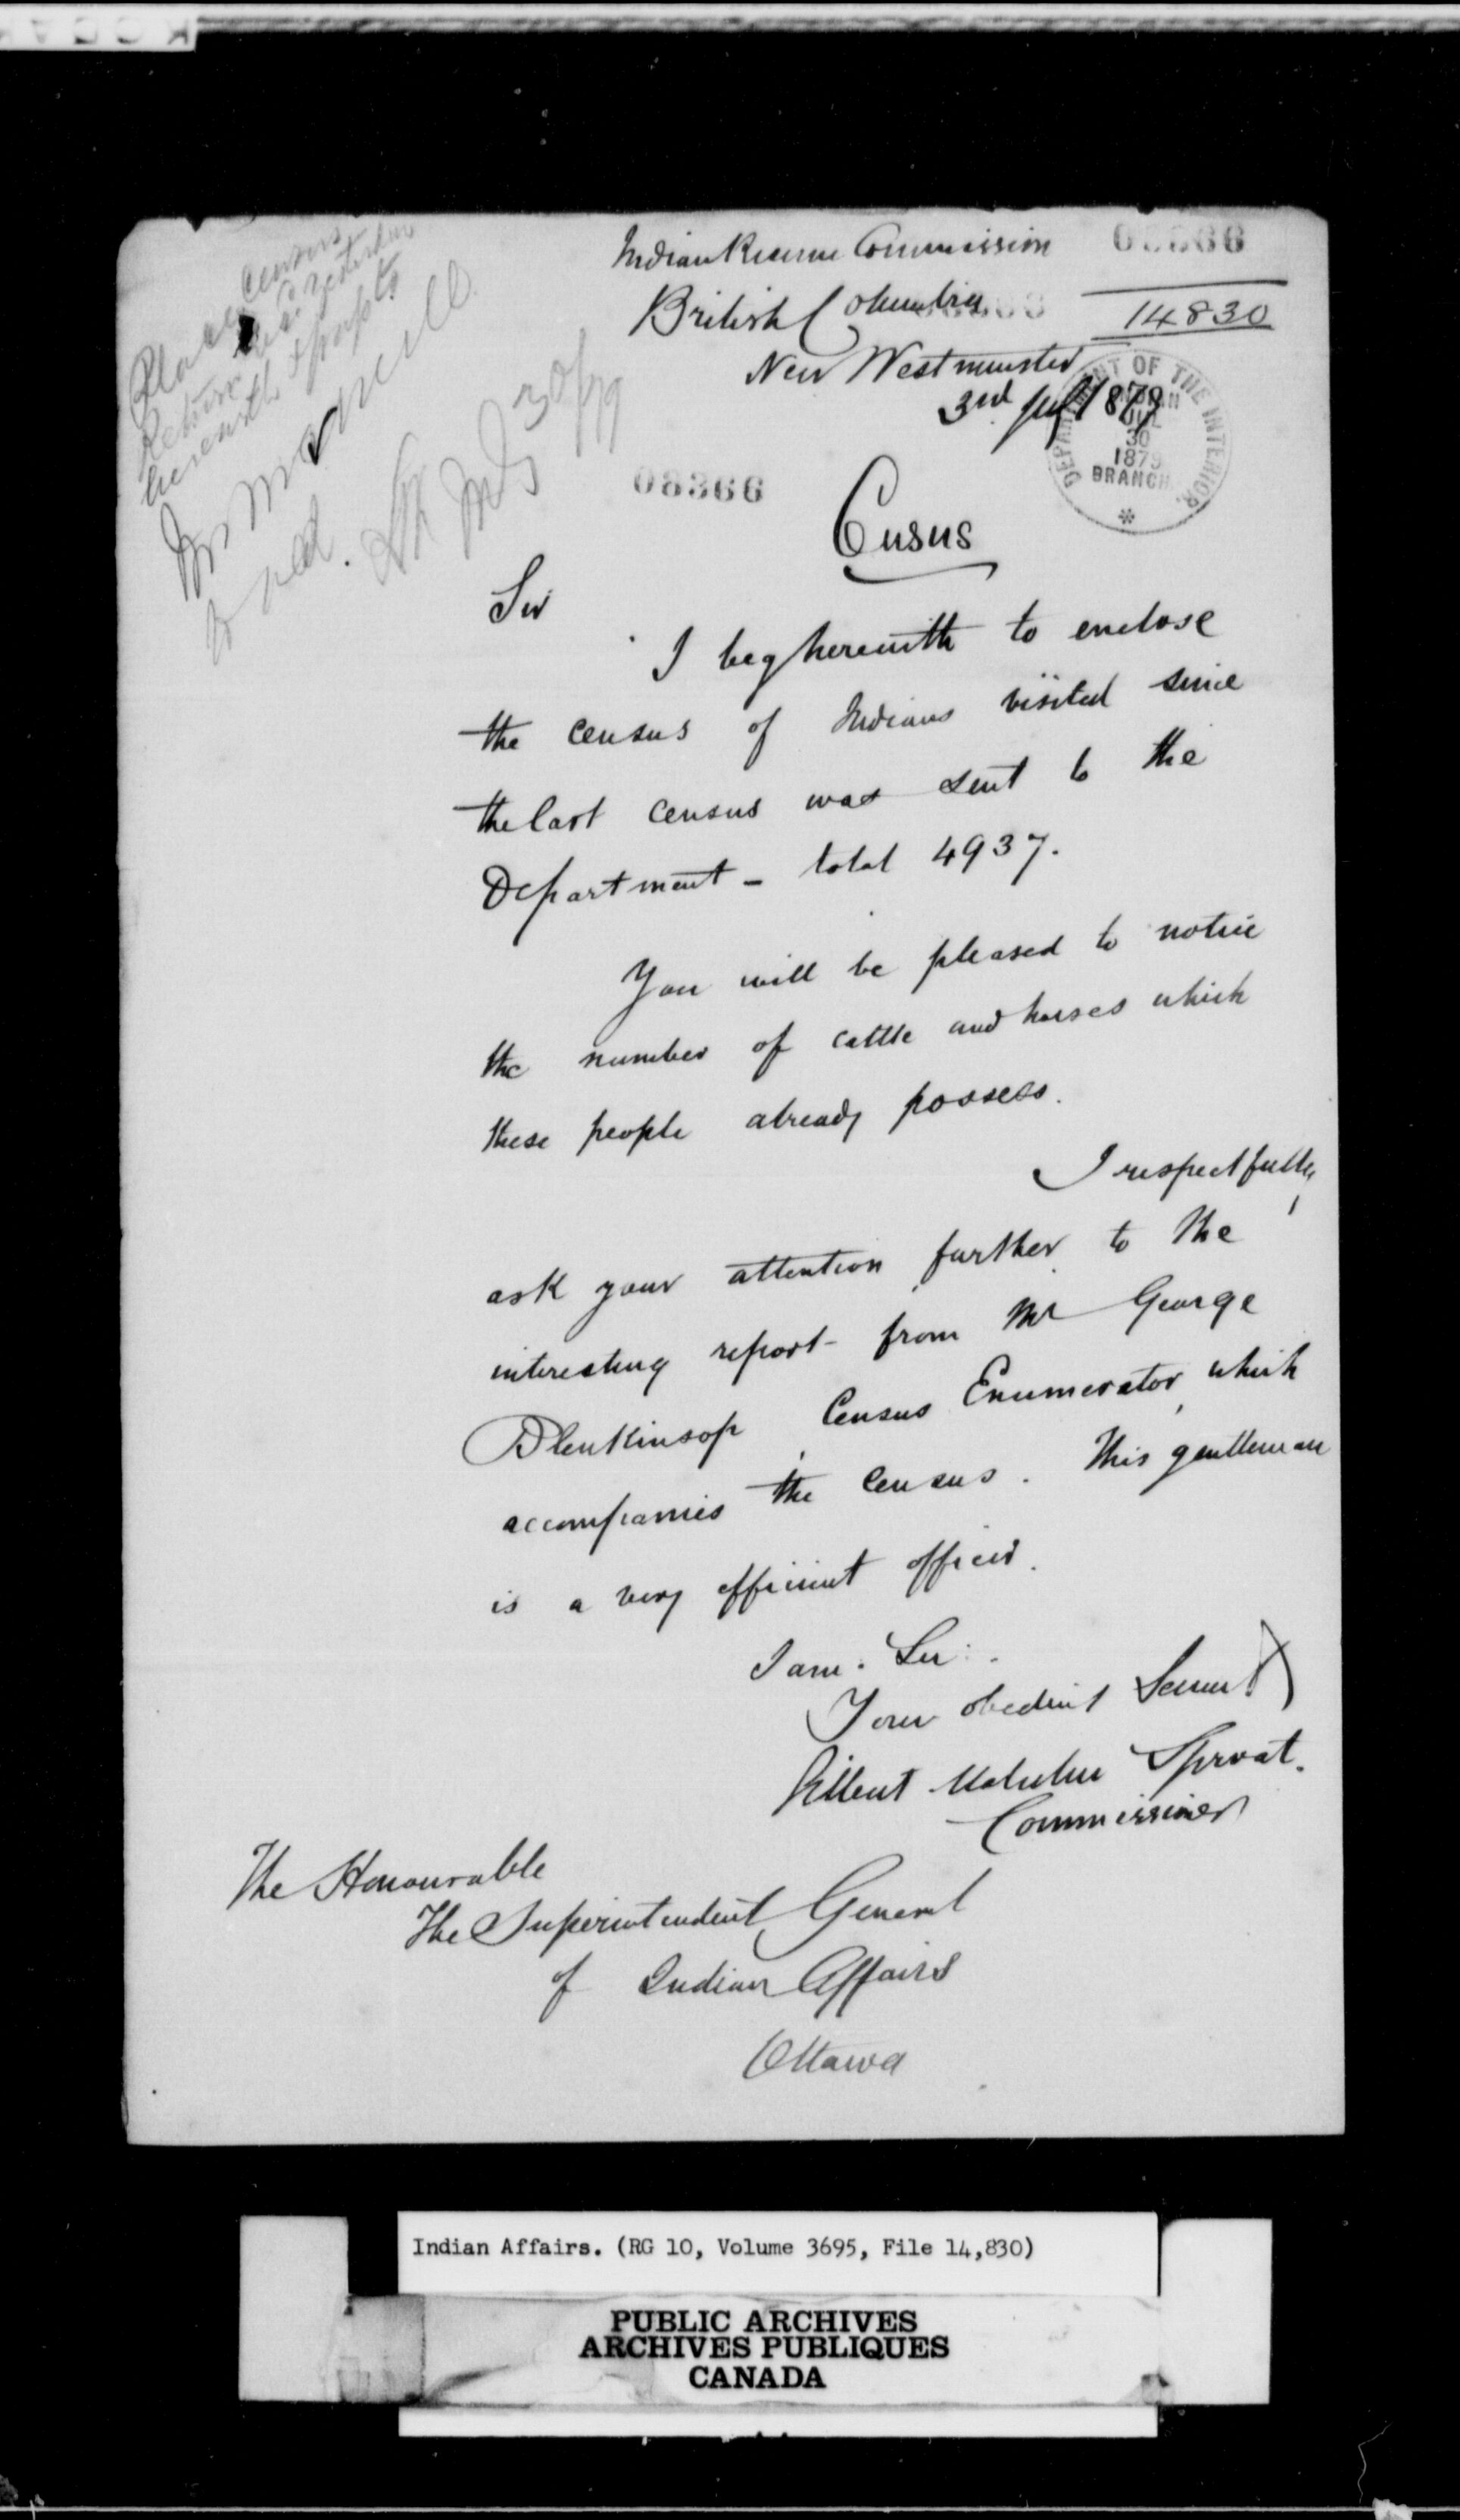 Indian Reserve Commission
08366
British Columbia
14830
New Westminster
3rd July 1879
DEPARTMENT OF THE INTERIOR.
INDIAN
JUL
30
1879
BRANCH
08366
Census
Place
census
herewith
Sir
I beg herewith to enclose
the census of Indians visited since
the last census was sent to the
Department - total 4937.
You will be pleased to notice
the number of cattle and horses which
these people already possess.
I respectfully
ask your attention further to the
interesting report from Mr George
Blenkinsop, Census Enumerator, which
accompanies the census. This gentleman
is a very efficient officer.
I am. Sir.
Your obedient Servant
Gilbert Malcolm Sproat.
Commissioner
The Honourable
The Superintendent General
of Indian Affairs
Ottawa
Indian Affairs. (RG 10, Volume 3695, File 14,830)
PUBLIC ARCHIVES
ARCHIVES PUBLIQUES
CANADA